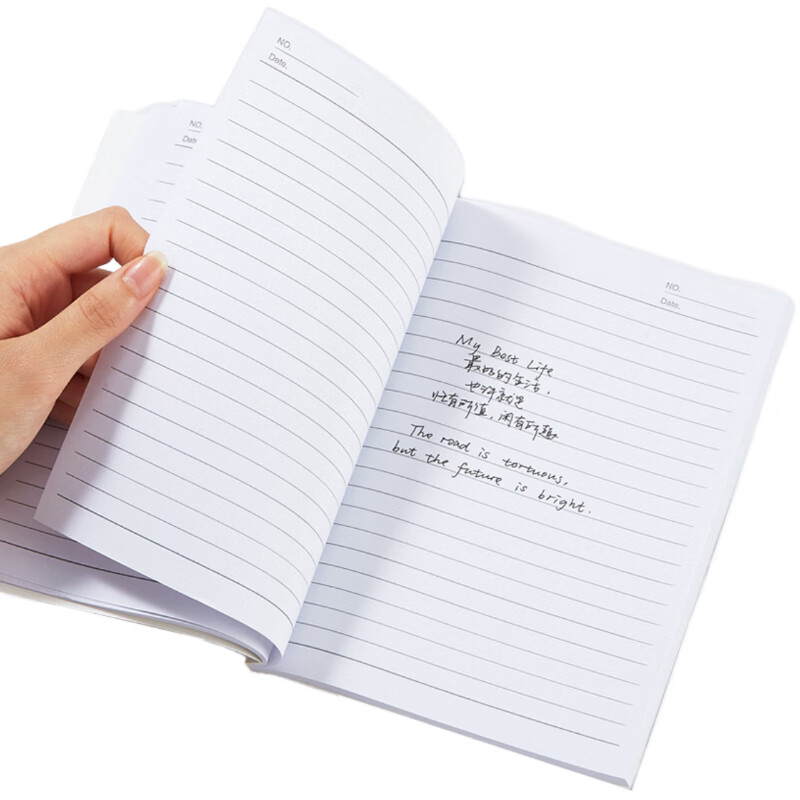 NO.
Date.
NO.
Dat
NO.
Date.
My Best Life
最好的生活,
也许就是
忙有所值,闲有所趣
The road is tortuous,
but the future is bright.